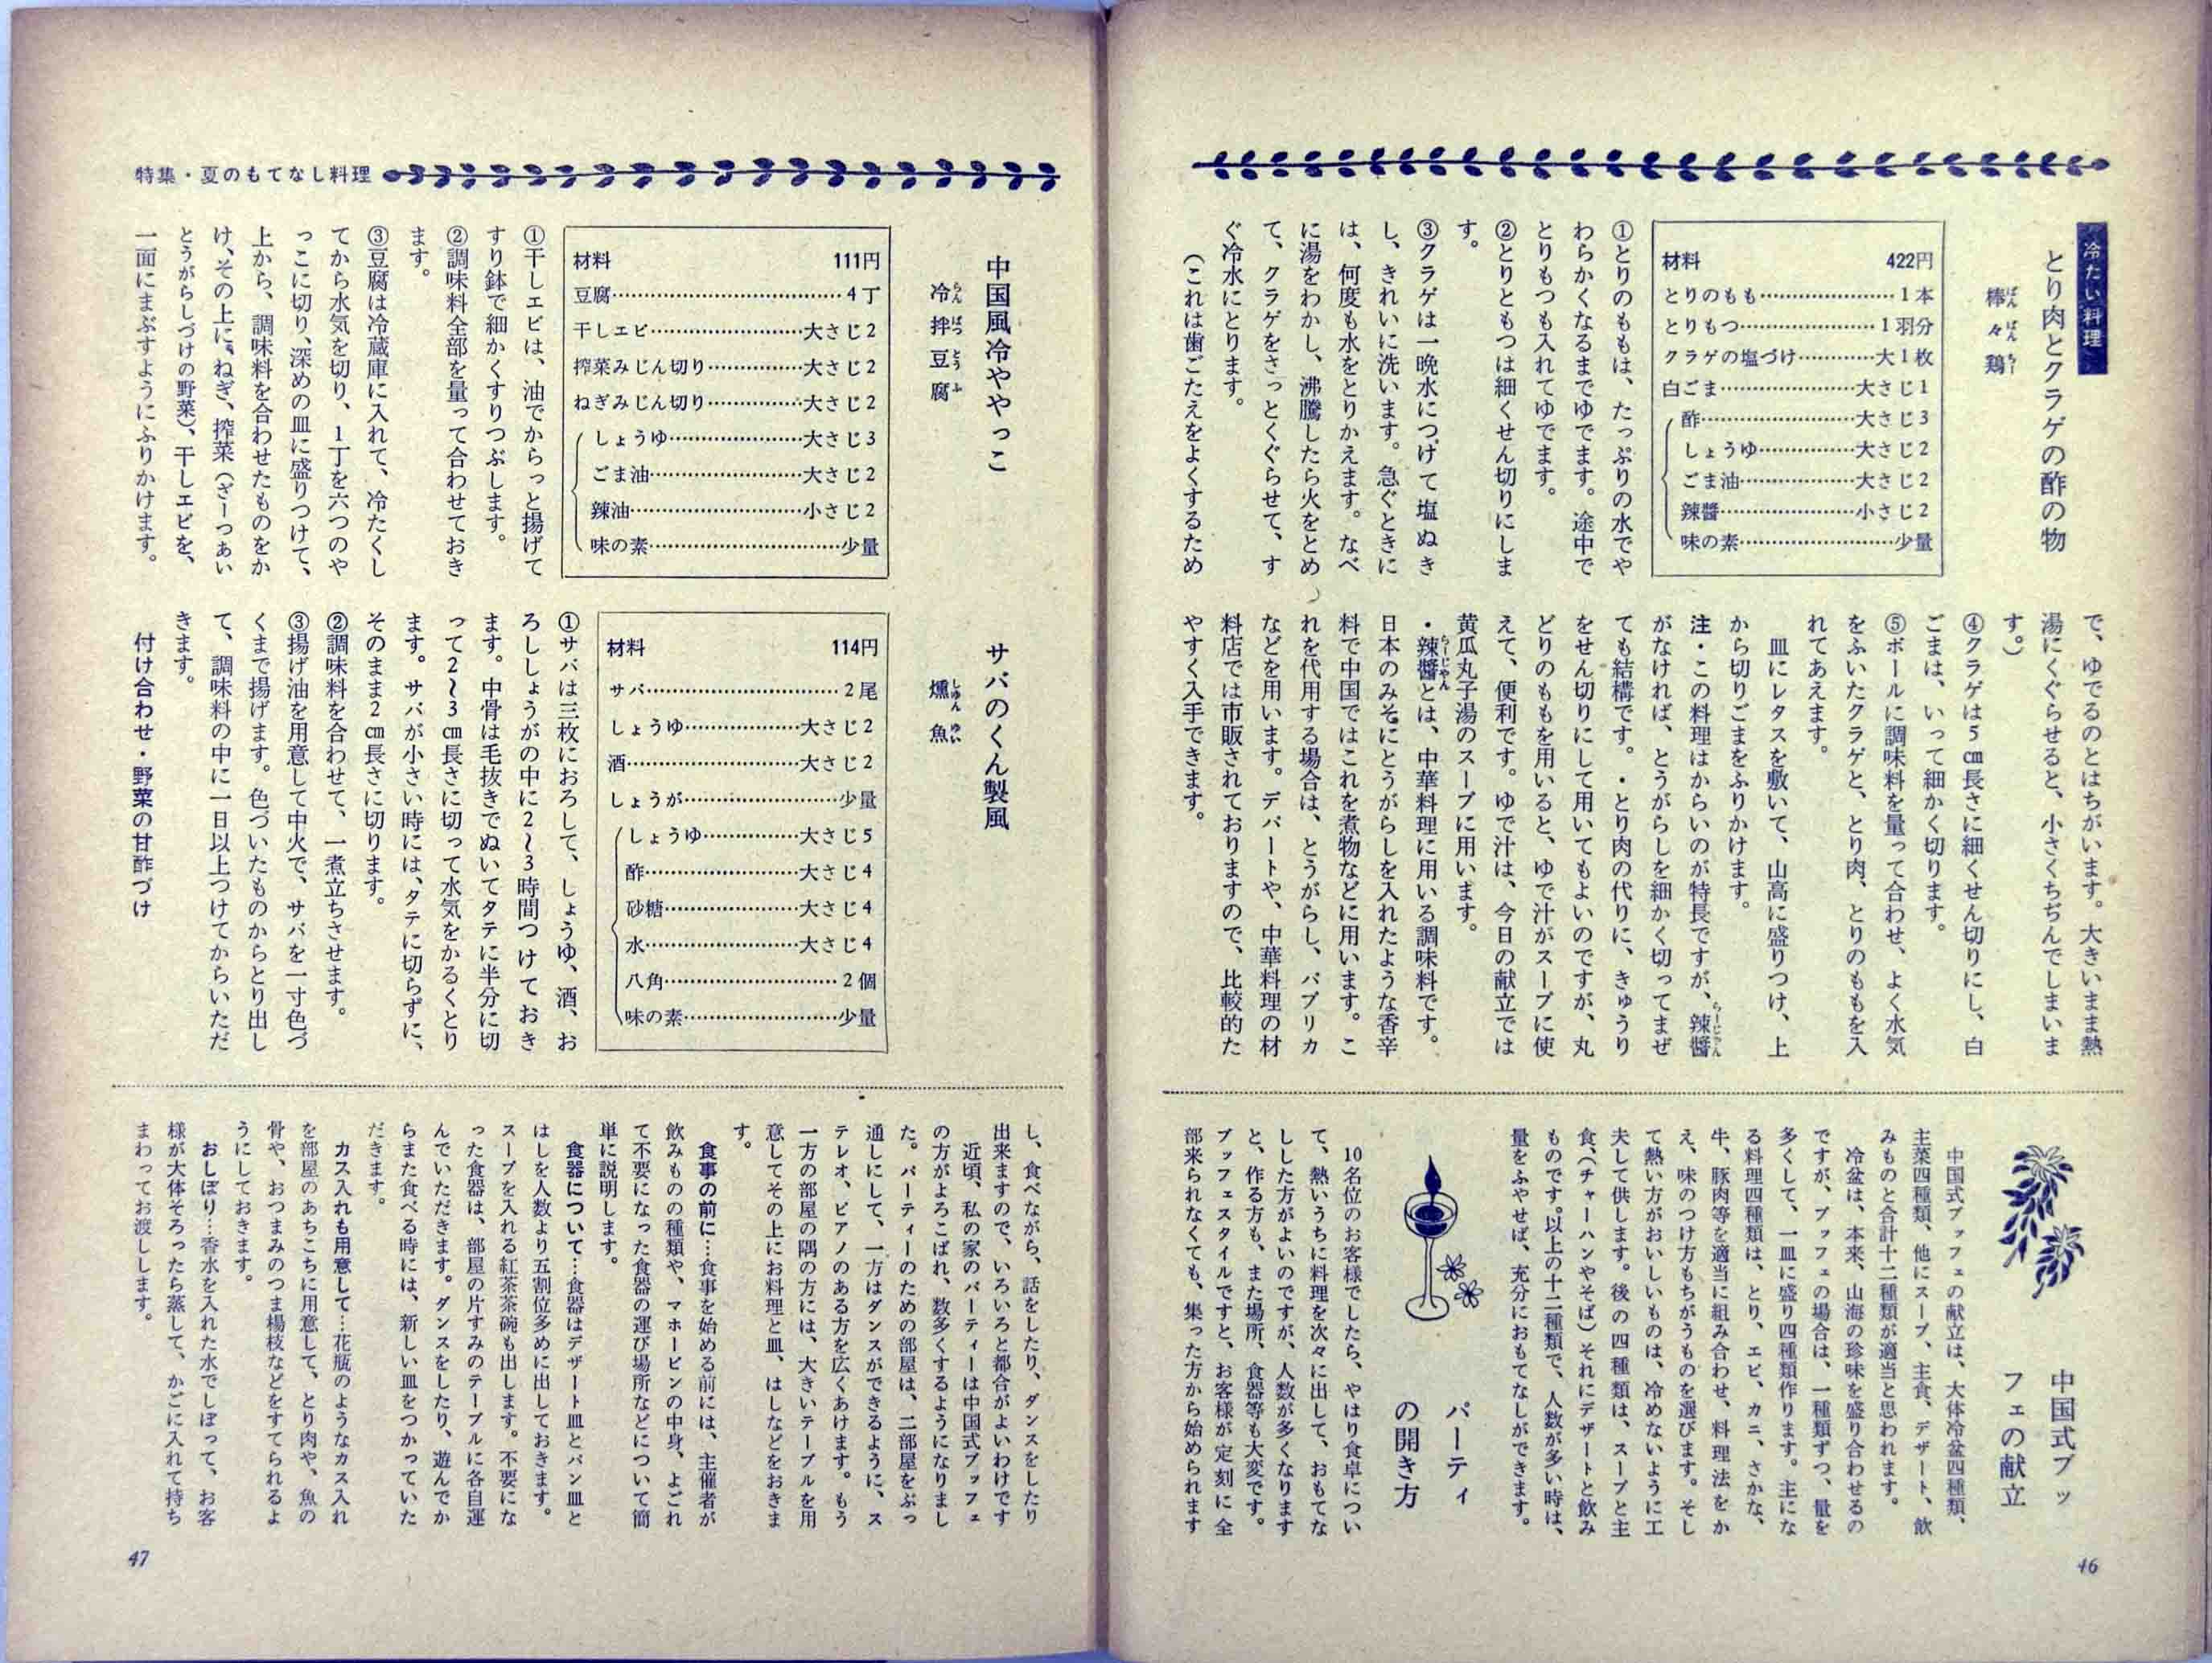 冷たい料理
とり肉とクラゲの酢の物
棒々鶏
ばんばんちー
材料 422円
とりのもも…………1本
とりもつ…………1羽分
クラゲの塩づけ…………大1枚
白ごま…………大さじ1
酢…………大さじ3
しょうゆ…………大さじ2
ごま油…………大さじ2
辣醬…………小さじ2
味の素…………少量
①とりのももは、たっぷりの水でや
わらかくなるまでゆでます。途中で
とりもつも入れてゆでます。
②とりともつは細くせん切りにしま
す。
③クラゲは一晩水につけて塩ぬき
し、きれいに洗います。急ぐときに
は、何度も水をとりかえます。なべ
に湯をわかし、沸騰したら火をとめ
て、クラゲをさっとくぐらせて、す
ぐ冷水にとります。
（これは歯ごたえをよくするため
で、ゆでるのとはちがいます。大きいまま熱
湯にくぐらせると、小さくちぢんでしまいま
す。）
④クラゲは5㎝長さに細くせん切りにし、白
ごまは、いって細かく切ります。
⑤ボールに調味料を量って合わせ、よく水気
をふいたクラゲと、とり肉、とりのももを入
れてあえます。
皿にレタスを敷いて、山高に盛りつけ、上
から切りごまをふりかけます。
注・この料理はからいのが特長ですが、辣醬
らーじゃん
がなければ、とうがらしを細かく切ってまぜ
ても結構です。・とり肉の代りに、きゅうり
をせん切りにして用いてもよいのですが、丸
どりのももを用いると、ゆで汁がスープに使
えて、便利です。ゆで汁は、今日の献立では
黄瓜丸子湯のスープに用います。
・辣醬とは、中華料理に用いる調味料です。
らーじゃん
日本のみそにとうがらしを入れたような香辛
料で中国ではこれを煮物などに用います。こ
れを代用する場合は、とうがらし、パプリカ
などを用います。デパートや、中華料理の材
料店では市販されておりますので、比較的た
やすく入手できます。
中国式ブッ
フェの献立
中国式ブッフェの献立は、大体冷盆四種類、
主菜四種類、他にスープ、主食、デザート、飲
みものと合計十二種類が適当と思われます。
冷盆は、本来、山海の珍味を盛り合わせるの
ですが、ブッフェの場合は、一種類ずつ、量を
多くして、一皿に盛り四種類作ります。主にな
る料理四種類は、とり、エビ、カニ、さかな、
牛、豚肉等を適当に組み合わせ、料理法をか
え、味のつけ方もちがうものを選びます。そし
て熱い方がおいしいものは、冷めないように工
夫して供します。後の四種類は、スープと主
食、（チャーハンやそば）それにデザートと飲み
ものです。以上の十二種類で、人数が多い時は、
量をふやせば、充分におもてなしができます。
パーティ
の開き方
10名位のお客様でしたら、やはり食卓につい
て、熱いうちに料理を次々に出して、おもてな
しした方がよいのですが、人数が多くなります
と、作る方も、また場所、食器等も大変です。
ブッフェスタイルですと、お客様が定刻に全
部来られなくても、集った方から始められます
46
特集・夏のもてなし料理
中国風冷ややっこ
冷拌豆腐
らんばつとうふ
材料 111円
豆腐…………4丁
干しエビ…………大さじ2
搾菜みじん切り…………大さじ2
ねぎみじん切り…………大さじ2
しょうゆ…………大さじ3
ごま油…………大さじ2
辣油…………小さじ2
味の素…………少量
①干しエビは、油でからっと揚げて
すり鉢で細かくすりつぶします。
②調味料全部を量って合わせておき
ます。
③豆腐は冷蔵庫に入れて、冷たくし
てから水気を切り、1丁を六つのや
っこに切り、深めの皿に盛りつけて、
上から、調味料を合わせたものをか
け、その上に、ねぎ、搾菜（ざーつぁい
とうがらしづけの野菜）、干しエビを、
一面にまぶすようにふりかけます。
サバのくん製風
燻魚
しゅんゆい
材料 114円
サバ…………2尾
しょうゆ…………大さじ2
酒…………大さじ2
しょうが…………少量
しょうゆ…………大さじ5
酢…………大さじ4
砂糖…………大さじ4
水…………大さじ4
八角…………2個
味の素…………少量
①サバは三枚におろして、しょうゆ、酒、お
ろししょうがの中に2〜3時間つけておき
ます。中骨は毛抜きでぬいてタテに半分に切
って2〜3㎝長さに切って水気をかるくとり
ます。サバが小さい時には、タテに切らずに、
そのまま2㎝長さに切ります。
②調味料を合わせて、一煮立ちさせます。
③揚げ油を用意して中火で、サバを一寸色づ
くまで揚げます。色づいたものからとり出し
て、調味料の中に一日以上つけてからいただ
きます。
付け合わせ・野菜の甘酢づけ
し、食べながら、話をしたり、ダンスをしたり
出来ますので、いろいろと都合がよいわけです
近頃、私の家のパーティーは中国式ブッフェ
の方がよろこばれ、数多くするようになりまし
た。パーティーのための部屋は、二部屋をぶっ
通しにして、一方はダンスができるように、ス
テレオ、ピアノのある方を広くあけます。もう
一方の部屋の隅の方には、大きいテーブルを用
意してその上にお料理と皿、はしなどをおきま
す。
食事の前に…食事を始める前には、主催者が
飲みものの種類や、マホービンの中身、よごれ
て不要になった食器の運び場所などについて簡
単に説明します。
食器について…食器はデザート皿とパン皿と
はしを人数より五割位多めに出しておきます。
スープを入れる紅茶茶碗も出します。不要にな
った食器は、部屋の片すみのテーブルに各自運
んでいただきます。ダンスをしたり、遊んでか
らまた食べる時には、新しい皿をつかっていた
だきます。
カス入れも用意して…花瓶のようなカス入れ
を部屋のあちこちに用意して、とり肉や、魚の
骨や、おつまみのつま楊枝などをすてられるよ
うにしておきます。
おしぼり…香水を入れた水でしぼって、お客
様が大体そろったら蒸して、かごに入れて持ち
まわってお渡しします。
47